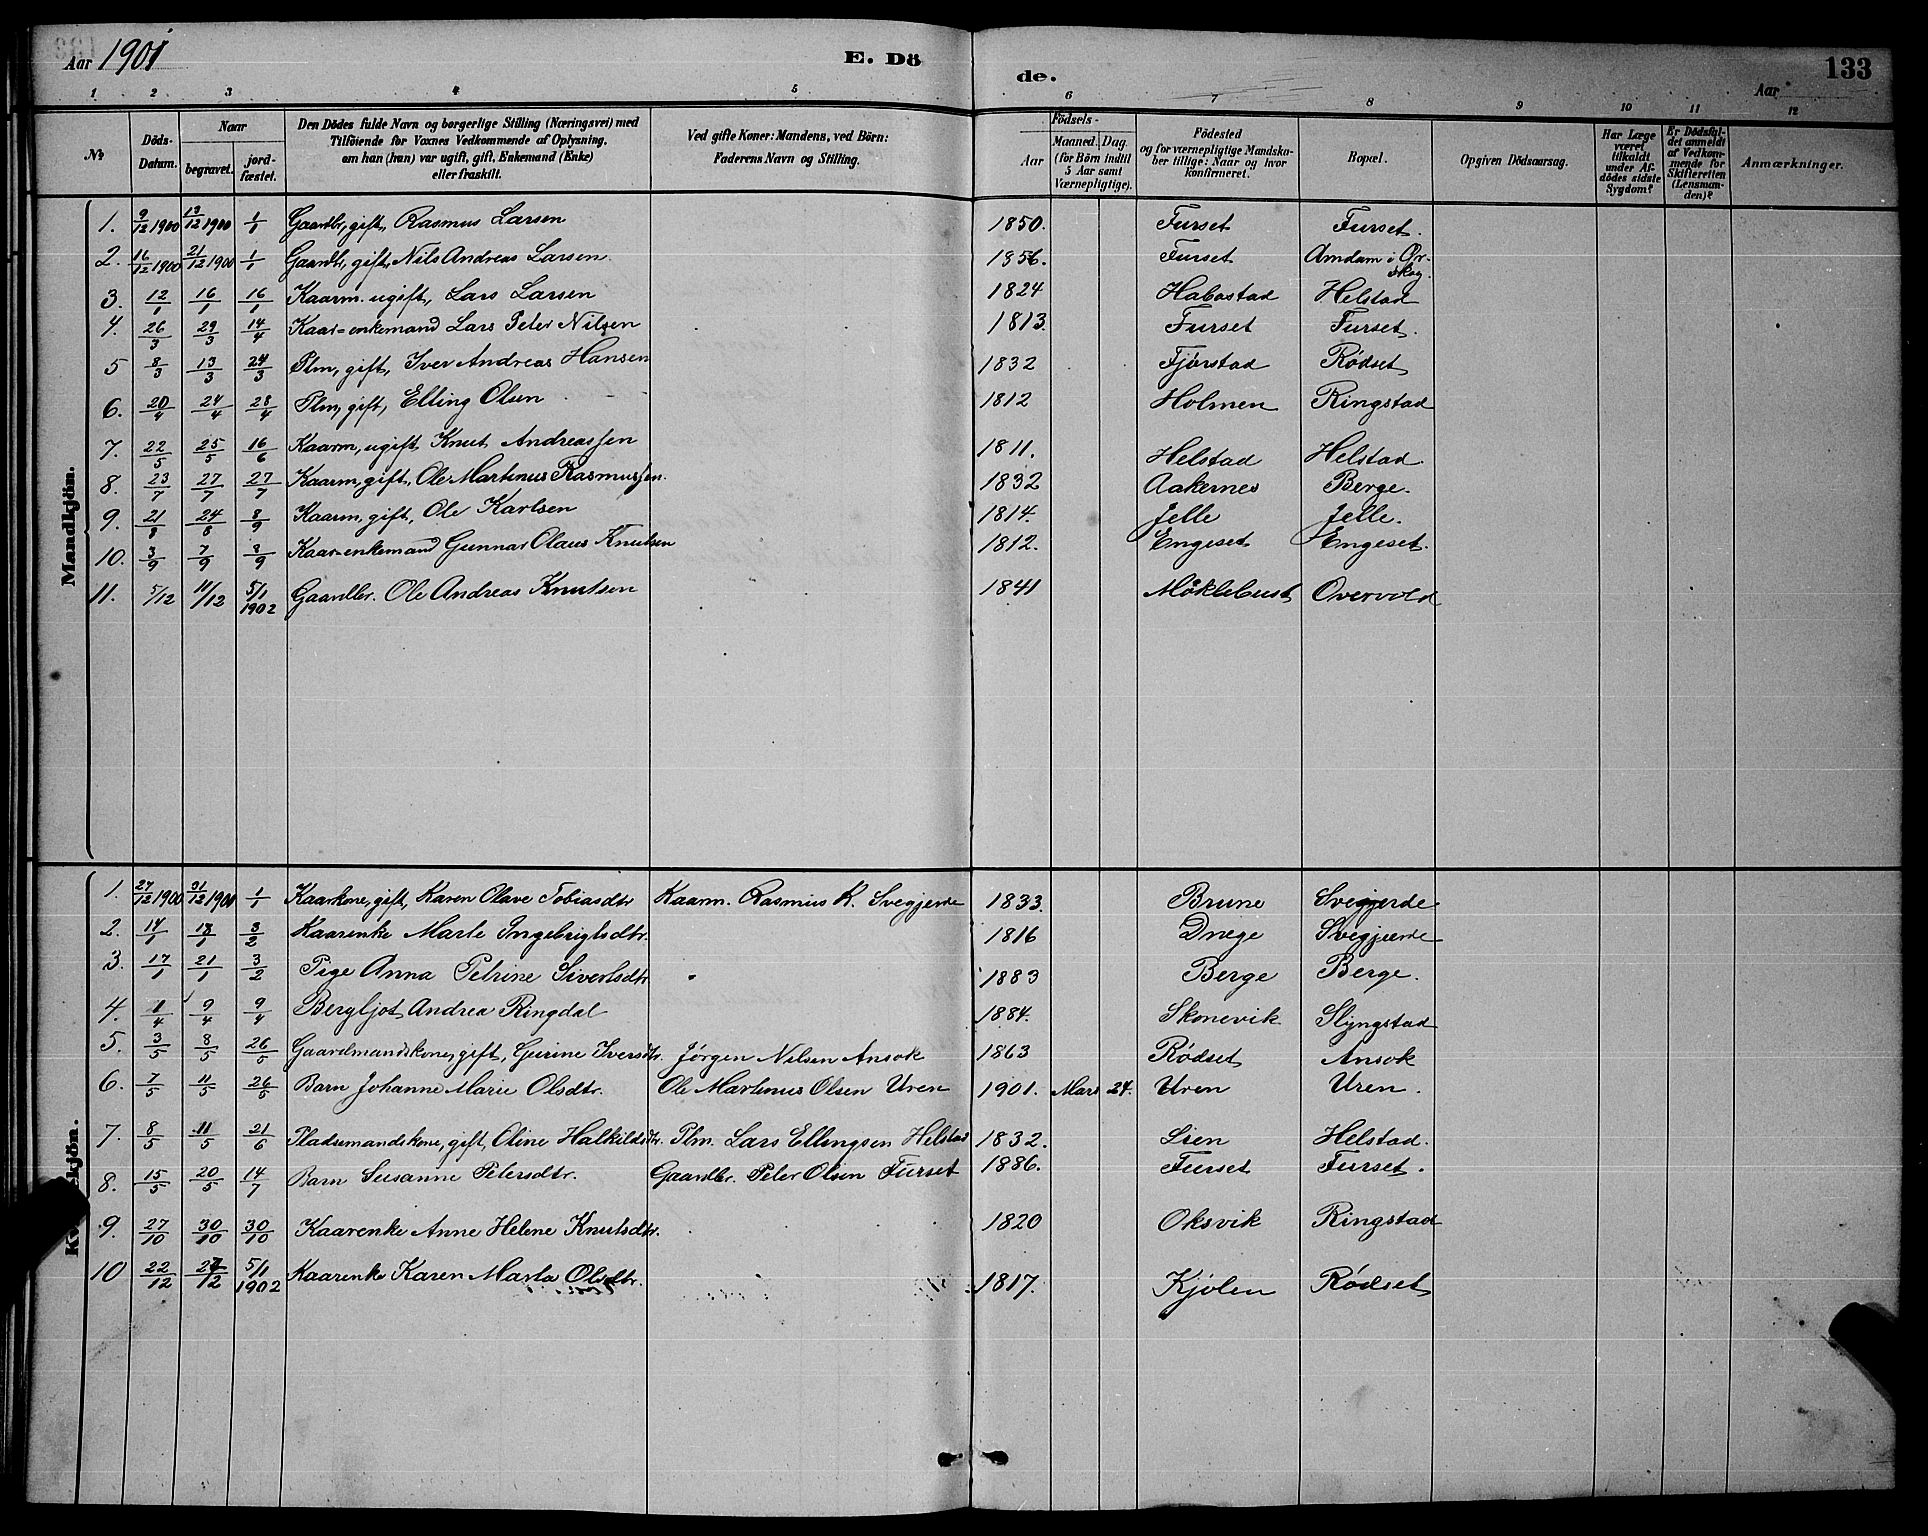 Aar 1901 E. Dö de. Aar 133
1 2 3 4 5 6 7 8 9 10 11 12
№ Döds-Datum. Naar begravet. jord-fæstet. Den Dödes fulde Navn og borgerlige Stilling (Næringsvei) med Tilföiende for Voxnes Vedkommende af Oplysning, om han (hun) var ugift, gift, Enkemand (Enke) eller fraskilt. Ved gifte Koner: Mandens, ved Börn: Faderens Navn og Stilling. Födsels- Aar Maaned. Dag. (for Börn indtil 5 Aar samt Værnepligtige). Födested og for værnepligtige Mandska-ber tillige: Naar og hvor konfirmeret. Bopæl. Opgiven Dödsaarsag. Har Læge været tilkaldt under Af-dödes sidste Sygdom? Er Dödsfal-det anmeldt af Vedkom-mende for Skifteretten (Lensman-den)? Anmærkninger.
Mandkjön.
1. 9/12 1900 13/12 1900 1/1 Gaardbr, gift, Rasmus Larsen 1850. Furset Furset.
2. 16/12 1900 21/12 1900 1/1 Gaardbr, gift, Nils Andreas Larsen 1856. Furset Amdam i Ør-skog.
3. 12/1 16/1 16/1 Kaarm. ugift, Lars Larsen 1824 Habostad Helstad
4. 26/3 29/3 14/4 Kaar-enkemand Lars Peter Nilsen 1813. Furset Furset.
5 8/3 13/3 24/3 Plm, gift, Iver Andreas Hansen 1832 Fjørstad Rødset
6. 20/4 24/4 28/4 Plm, gift, Elling Olsen 1812 Holmen Ringstad
7. 22/5 25/5 16/6 Kaarm, ugift Knut Andreassen 1811. Helstad Helstad.
8. 23/7 27/7 27/7 Kaarm, gift, Ole Martinus Rasmussen. 1832 Aakernes Berge.
9. 21/8 24/8 8/9 Kaarm, gift, Ole Karlsen 1814. Jelle Jelle.
10. 3/9 7/9 8/9 Kaar-enkemand Gunnar Olaus Knutsen 1812. Engeset Engeset.
11. 5/12 11/12 5/1 1902 Gaardbr. Ole Andreas Knutsen 1841 Møklebust Overvold
1. 27/12 1900 31/12 1900 1/1 Kaarkone, gift, Karen Olave Tobiasdtr Kaarm. Rasmus K. Svegjerde 1833. Brune Svegjerde
2. 14/1 18/1 3/2 Kaarenke Marte Ingebrigtsdtr. 1816 Dnege Svegjerde
3. 17/1 21/1 3/2 Pige Anna Petrine Sivertsdtr 1883 Berge Berge.
4. 1/4 9/4 9/4 Bergljot Andrea Ringdal 1884. Skonevik Slyngstad
5. 3/5 8/5 26/5 Gaardmandskone, gift, Gurine Iversdtr. Jørgen Nilsen Ansok 1863 Rødset Ansok
6. 7/5 11/5 26/5 Barn Johanne Marie Olsdtr. Ole Martinus Olsen Uren 1901. Mars 24. Uren Uren.
7. 8/5 11/5 21/6 Pladsemandskone, gift, Oline Halkildsdtr. Plm. Lars Ellingsen Helstad 1832. Lien Helstad.
8. 15/5 20/5 14/7 Barn Susanne Petersdtr. Gaardbr. Peter Olsen Furset 1886. Furset Furset.
9. 27/10 30/10 30/10 Kaarenke Anne Helene Knutsdtr. 1820 Oksvik Ringstad
10 22/12 27/12 5/1 1902 Kaarenke Karen Marta Olsdtr. 1817. Kjølen Rødset